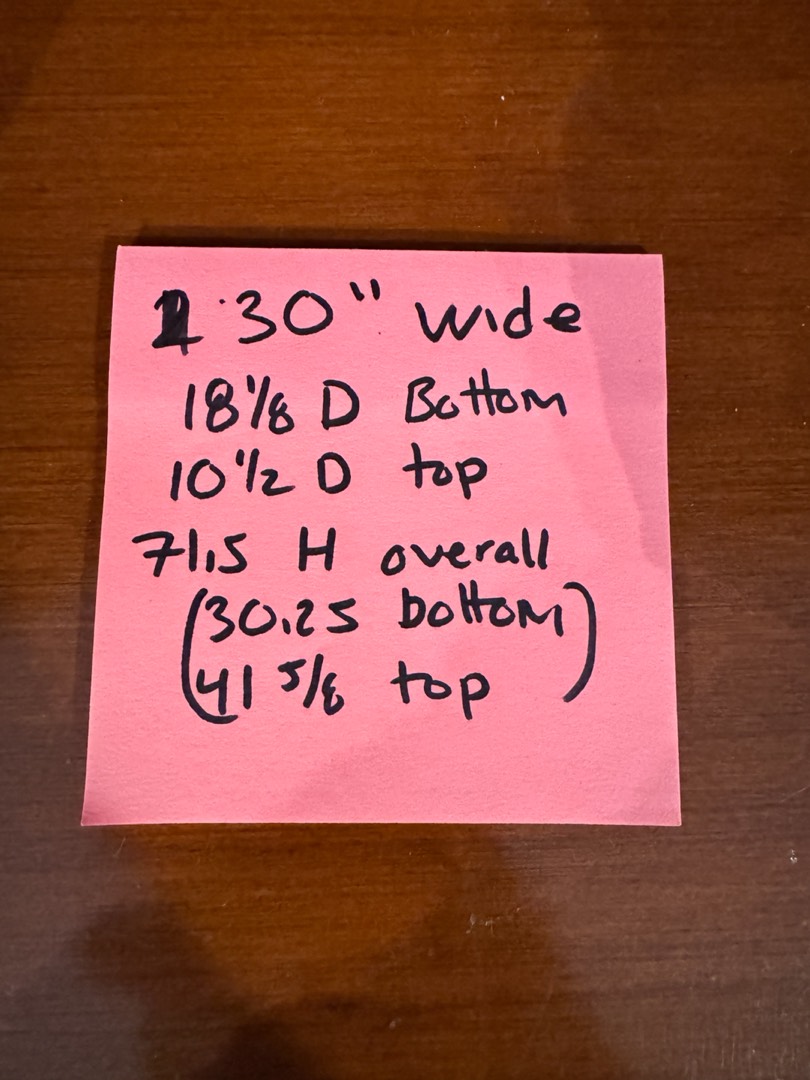 30" wide
18 1/8 D Bottom
10 1/2 D top
71.5 H overall
(30.25 bottom
41 5/8 top)